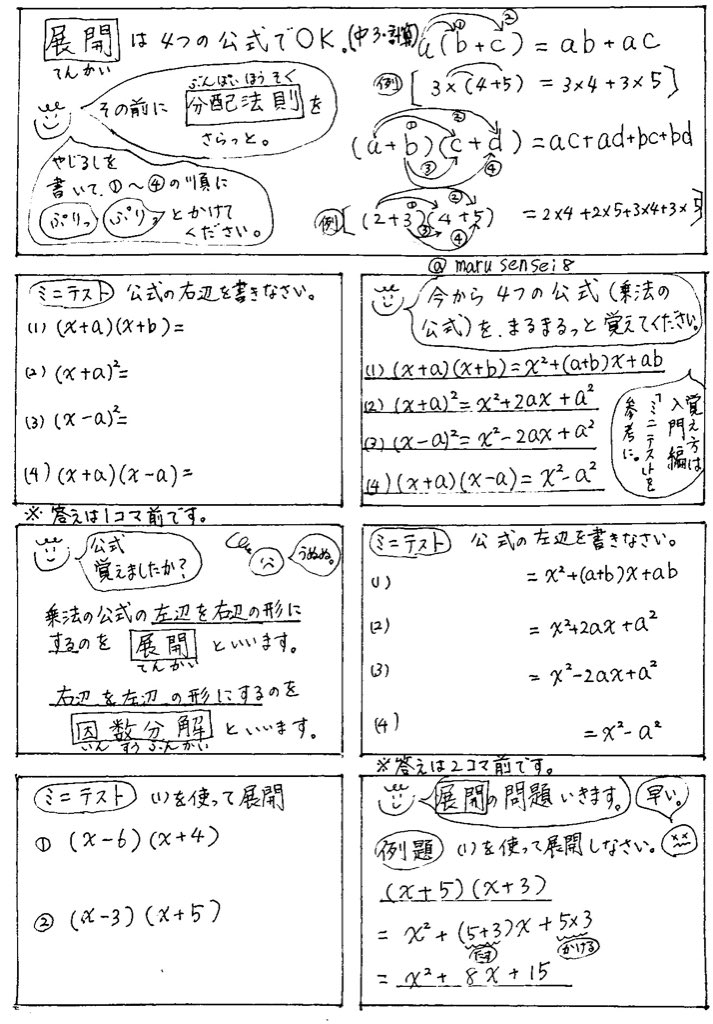 展開 は 4つの公式でOK。(中3・計算)
てんかい
その前に 分配法則 を
ぶんぱいほうそく
さらっと。
やじるしを
書いて、①〜④の順に
ぷりっ ぷりっ とかけて
ください。
① ②
a(b+c) = ab+ac
例 [ 3×(4+5) = 3×4+3×5 ]
① ② ③ ④
(a+b)(c+d) = ac+ad+bc+bd
① ② ③ ④
例 [ (2+3)(4+5) = 2×4+2×5+3×4+3×5 ]
@marusensei8
今から4つの公式(乗法の
公式)を、まるまるっと覚えてください。
(1) (x+a)(x+b)=x²+(a+b)x+ab
(2) (x+a)²=x²+2ax+a²
(3) (x-a)²=x²-2ax+a²
(4) (x+a)(x-a)=x²-a²
覚え方は
入門編
「ミニテスト」を
参考に。
ミニテスト 公式の右辺を書きなさい。
(1) (x+a)(x+b)=
(2) (x+a)²=
(3) (x-a)²=
(4) (x+a)(x-a)=
※答えは1コマ前です。
ミニテスト 公式の左辺を書きなさい。
(1) = x²+(a+b)x+ab
(2) = x²+2ax+a²
(3) = x²-2ax+a²
(4) = x²-a²
※答えは2コマ前です。
公式
覚えましたか?
うぬぬ。
乗法の公式の左辺を右辺の形に
するのを 展開 といいます。
てんかい
右辺を左辺の形にするのを
因数分解 といいます。
いんすうぶんかい
展開の問題いきます。
早い。
例題 (1)を使って展開しなさい。
(x+5)(x+3)
= x²+(5+3)x+5×3
たす かける
= x²+8x+15
ミニテスト (1)を使って展開
① (x-6)(x+4)
② (x-3)(x+5)